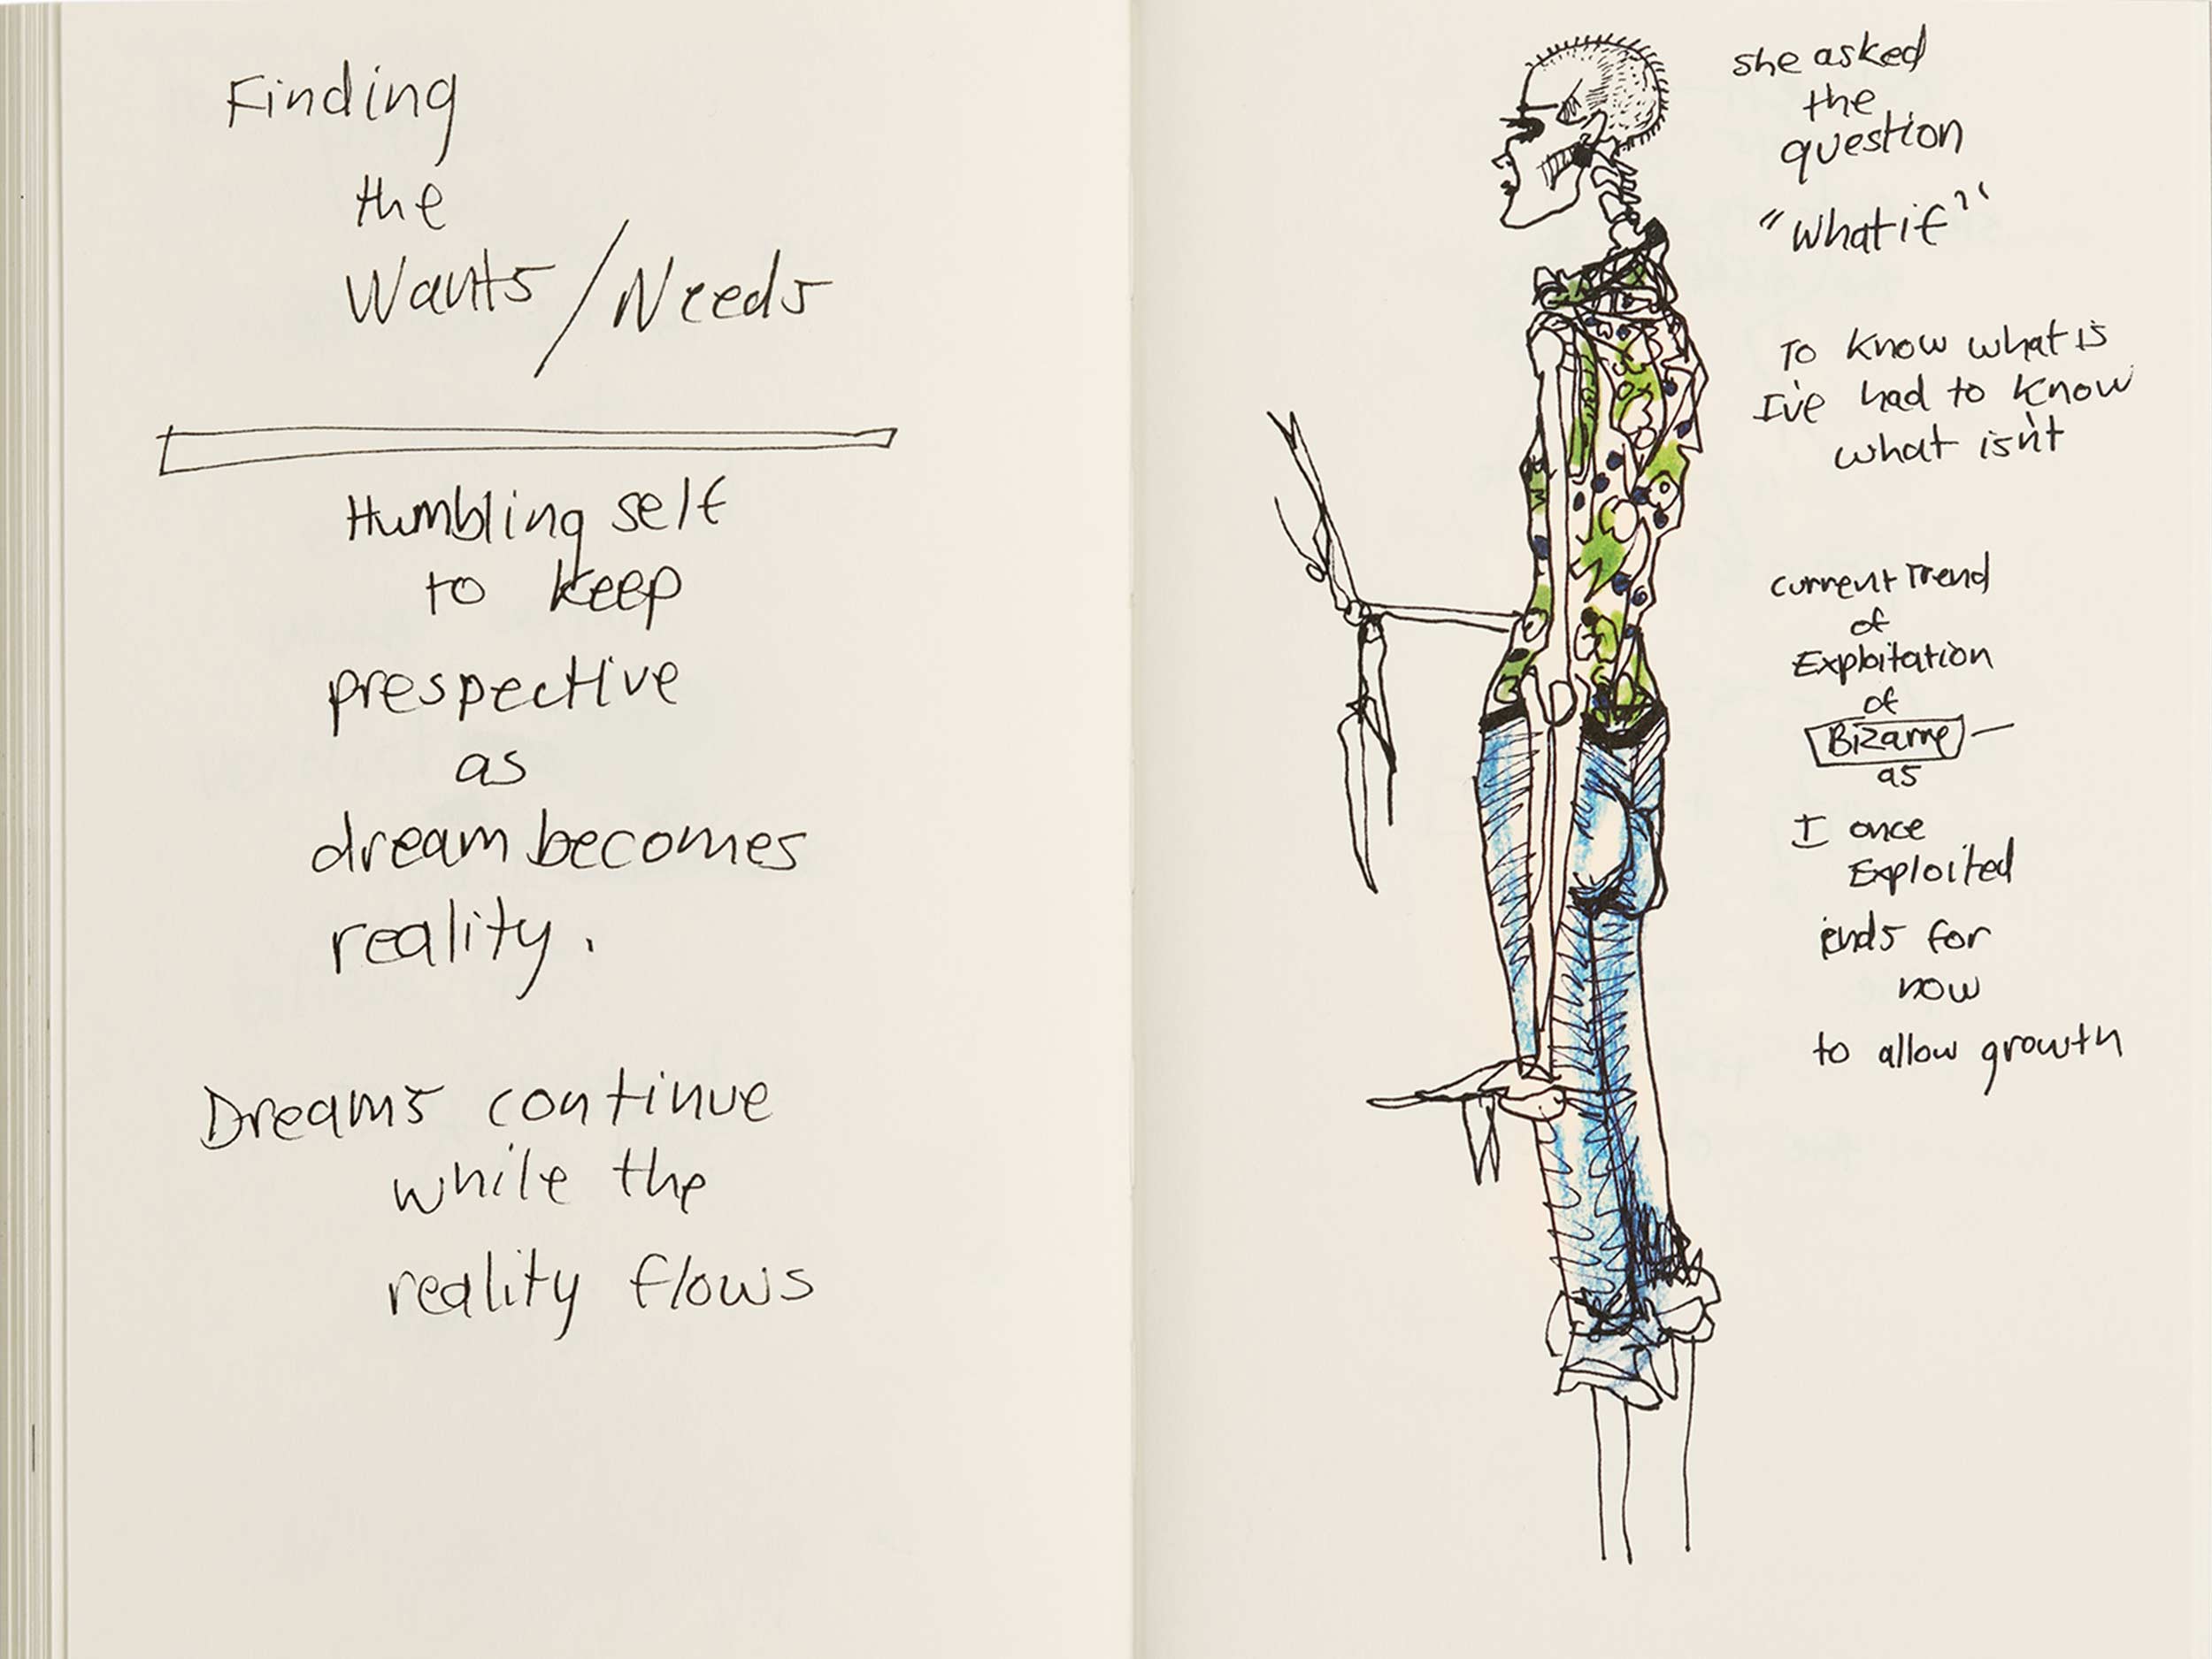 Finding
the
Wants/Needs
Humbling self
to keep
prespective
as
dream becomes
reality.
Dreams continue
while the
reality flows
she asked
the
question
"What if"
To know what is
I've had to know
what isn't
current Trend
of
Exploitation
of
Bizarre —
as
I once
Exploited
ends for
now
to allow growth